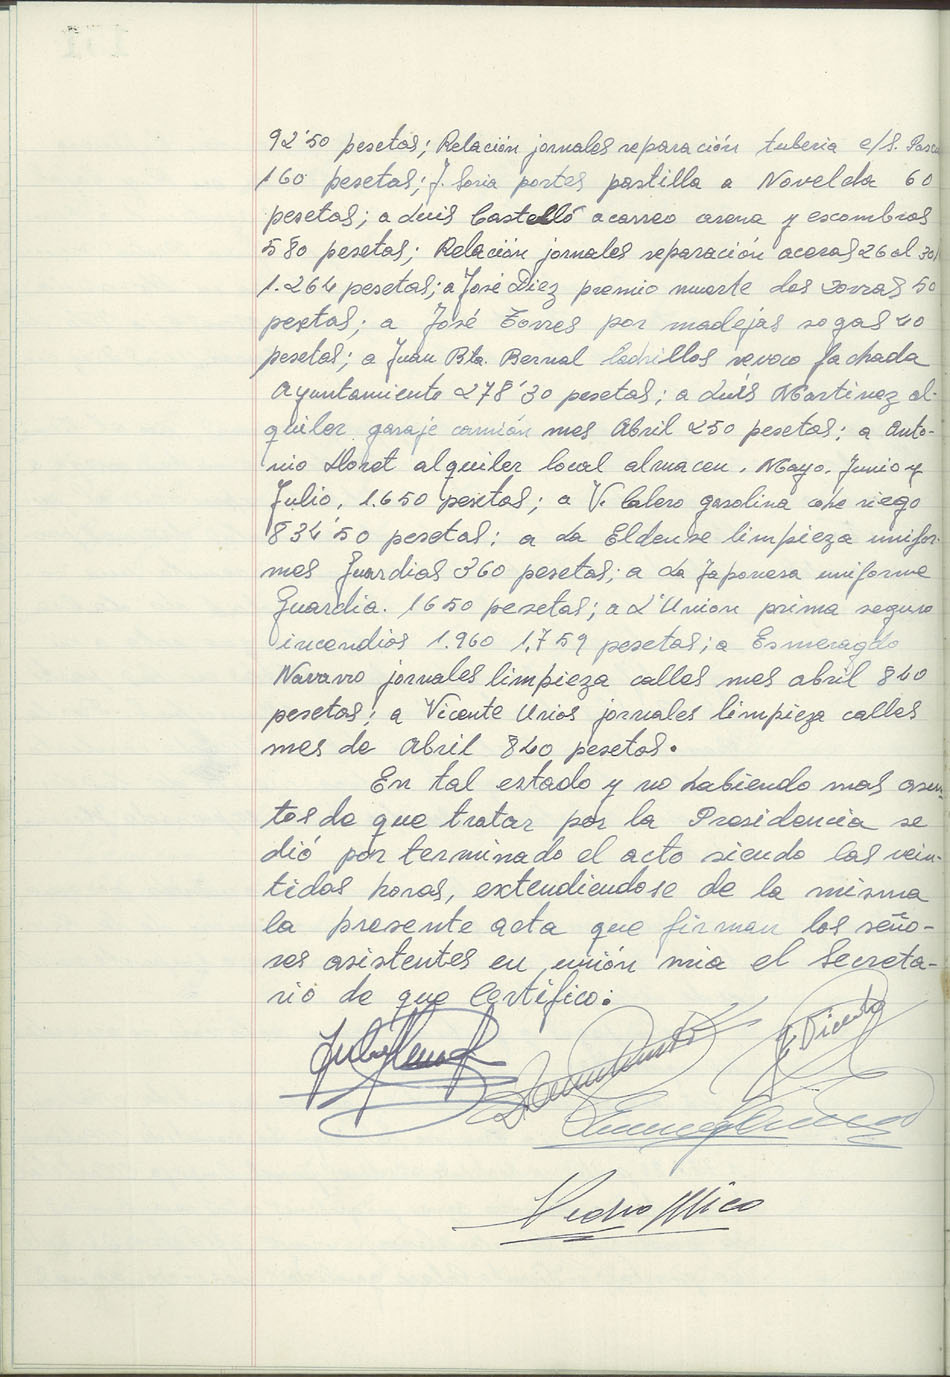 92'50 pesetas; Relación jornales reparación tuberia c/S. Pascu
160 pesetas; J. Soria portes pastilla a Novelda 60
pesetas; a Luis Castelló acarreo arena y escombros
580 pesetas; Relación jornales reparación aceras 26 al 30
1.264 pesetas; a José Diez premio muerte dos zorras 50
pesetas; a José Torres por madejas sogas 40
pesetas; a Juan Bta. Bernal ladrillos revoco fachada
Ayuntamiento 278'30 pesetas; a Luis Martinez al-
quiler garaje camión mes Abril 250 pesetas; a Anto-
nio Lloret alquiler local almacen, Mayo, Junio y
Julio, 1.650 pesetas; a V. Calero gasolina coche riego
834'50 pesetas; a La Eldense limpieza unifor-
mes Guardias 360 pesetas; a La Japonesa uniforme
Guardia. 1650 pesetas; a L'Union prima seguro
incendios 1.960 1,759 pesetas; a Esmeragdo
Navarro jornales limpieza calles mes abril 840
pesetas; a Vicente Urios jornales limpieza calles
mes de Abril 840 pesetas.
En tal estado y no habiendo mas asun-
tos de que tratar por la Presidencia se
dió por terminado el acto siendo las vein-
tidos horas, extendiendose de la misma
la presente acta que firman los seño-
res asistentes en unión mia el Secreta-
rio de que Certifico:
J. Vicente
Pedro Mico